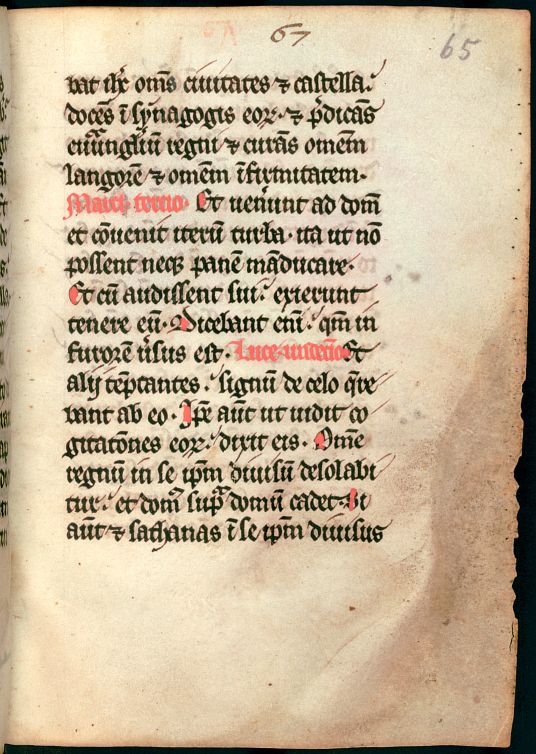 67
65
bat ih̅c om̅s ciuitates ⁊ castella.
doce̅s i̅ synagogis eoꝝ. ⁊ p̅dica̅s
euu̅ngl̅iu̅ regni ⁊ cura̅s omem̅
langore̅ ⁊ omem̅ i̅firmitatem.
Marci tertio. Et uen̅iunt ad dom̅
et co̅uenit iteru̅ turba. ita ut no̅
possent neqꝫ pane̅ ma̅ducare.
Et cu̅ audissent sui. exierunt
tenere eu̅. Dicebant eni̅. qm̅ in
furore̅ u̅sus est. Luce undeci̅o Et
alij te̅ptantes. signu̅ de celo q̅re
bant ab eo. Ip̅e aut̅ ut uidit co
gitato̅nes eoꝝ. dixit eis. Om̅e
regnu̅ in se ip̅m diuisu̅ desolabi
tur. et dom᷒ sup̅ domu̅ cadet. Si
aut̅ ⁊ sathanas i̅ se ip̅m diuisus